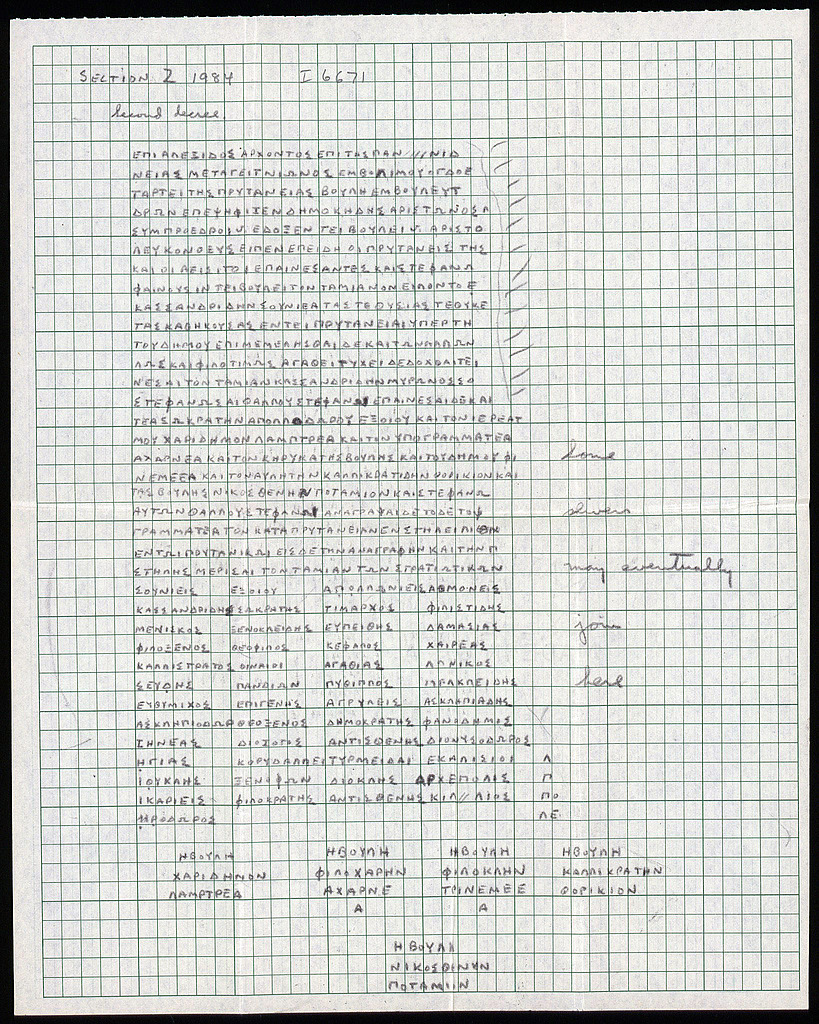 SECTION Z 1984 I 6671
Second decree.
ΕΠΙΑΛΕΞΙΔΟΣ ΑΡΧΟΝΤΟΣ ΕΠΙΤΗΣΠΑΝ///ΝΙΔ
ΝΕΙΑΣ ΜΕΤΑΓΕΙΤΝΙΩΝΟΣ ΕΜΒΟΛΙΜΟΥΟΓΔΟΕ
ΤΑΡΤΕΙΤΗΣΠΡΥΤΑΝΕΙΑΣ ΒΟΥΛΗΕΜΒΟΥΛΕΥΤ
ΔΡΩΝΕΠΕΨΗΦΙΖΕΝΔΗΜΟΚΗΔΗΣΑΡΙΣΤΩΝΟΣΑ
ΣΥΜΠΡΟΕΔΡΟΙ V. ΕΔΟΞΕΝ ΤΕΙΒΟΥΛΕΙ V. ΑΡΙΣΤΟ
ΛΕΥΚΟΝΟΕΥΣΕΙΠΕΝΕΠΕΙΔΗ ΟΙΠΡΥΤΑΝΕΙΣ ΤΗΣ
ΚΑΙΟΙΑΕΙΣΙΤΟΙΕΠΑΙΝΕΣΑΝΤΕΣ ΚΑΙΣΤΕΦΑΝΩ
ΦΑΙΝΟΥΣΙΝΤΕΙΒΟΥΛΕΙΤΟΝΤΑΜΙΑΝΟΝΕΙΛΟΝΤΟΕ
ΚΑΣΣΑΝΔΡΙΔΗΝΣΟΥΝΙΕΑΤΑΣΤΕΘΥΣΙΑΣΤΕΘΥΚΕ
ΤΑΣΚΑΘΗΚΟΥΣΑΣΕΝΤΕΙΠΡΥΤΑΝΕΙΑΙΥΠΕΡΤΗ
ΤΟΥΔΗΜΟΥΕΠΙΜΕΜΕΛΗΣΘΑΙΔΕΚΑΙΤΩΝΑΛΛΩΝ
ΛΩΣΚΑΙΦΙΛΟΤΙΜΩΣ ΑΓΑΘΕΙΤΥΧΕΙΔΕΔΟΧΘΑΙΤΕΙ
ΝΕΣΑΙΤΟΝΤΑΜΙΑΝΚΑΣΣΑΝΔΡΙΔΗΝΜΥΡΩΝΟΣΣΟ
ΣΤΕΦΑΝΩΣΑΙΘΑΛΛΟΥΣΤΕΦΑΝΩΙΕΠΑΙΝΕΣΑΙΔΕΚΑΙ
ΤΕΑΣΩΚΡΑΤΗΝΑΠΟΛΛΟΔΩΡΟΥΕΞΟΙΟΥΚΑΙΤΟΝΙΕΡΕΑΤ
ΜΟΥΧΑΡΙΔΗΜΟΝΛΑΜΠΤΡΕΑΚΑΙΤΟΝΥΠΟΓΡΑΜΜΑΤΕΑ
ΑΧΑΡΝΕΑΚΑΙΤΟΝΚΗΡΥΚΑΤΗΣΒΟΥΛΗΣΚΑΙΤΟΥΔΗΜΟΥΦΙ Some
ΝΕΜΕΕΑΚΑΙΤΟΝΑΥΛΗΤΗΝΚΑΛΛΙΚΡΑΤΙΔΗΝΘΟΡΙΚΙΟΝΚΑΙ
ΤΑΣΒΟΥΛΗΣΝΙΚΟΣΘΕΝΗΝΠΟΤΑΜΙΟΝΚΑΙΣΤΕΦΑΝΩ
ΑΥΤΩΝΘΑΛΛΟΥΣΤΕΦΑΝΩΙΑΝΑΓΡΑΨΑΙΔΕΤΟΔΕΤΟΨ slivers
ΓΡΑΜΜΑΤΕΑΤΟΝΚΑΤΑΠΡΥΤΑΝΕΙΑΝΕΝΣΤΗΛΕΙΛΙΘΙΝ
ΕΝΤΩΙΠΡΥΤΑΝΙΚΩΙΕΙΣΔΕΤΗΝΑΝΑΓΡΑΦΗΝΚΑΙΤΗΝΠ
ΣΤΗΛΗΣΜΕΡΙΣΑΙΤΟΝΤΑΜΙΑΝΤΩΝΣΤΡΑΤΙΩΤΙΚΩΝ may eventually
ΣΟΥΝΙΕΙΣ ΕΞΟΙΟΥ ΑΠΟΛΛΩΝΙΕΙΣ ΑΘΜΟΝΕΙΣ
ΚΑΣΣΑΝΔΡΙΔΗΣ ΣΩΚΡΑΤΗΣ ΤΙΜΑΡΧΟΣ ΦΙΛΙΣΤΙΔΗΣ
ΜΕΝΙΣΚΟΣ ΞΕΝΟΚΛΕΙΔΗΣ ΕΥΠΕΙΘΗΣ ΔΑΜΑΣΙΑΣ join
ΦΙΛΟΞΕΝΟΣ ΘΕΟΦΙΛΟΣ ΚΕΦΑΛΟΣ ΧΑΙΡΕΑΣ
ΚΑΛΛΙΣΤΡΑΤΟΣ ΟΙΝΑΙΟΙ ΑΓΑΘΙΑΣ ΛΥΝΙΚΟΣ
ΣΕΥΘΗΣ ΠΑΝΔΙΩΝ ΠΥΘΙΠΠΟΣ ΗΡΑΚΛΕΙΔΗΣ here
ΕΥΘΥΜΙΧΟΣ ΕΠΙΓΕΝΗΣ ΑΓΡΥΛΕΙΣ ΑΣΚΛΗΠΙΑΔΗΣ
ΑΣΚΛΗΠΙΟΔΩΡ ΘΕΟΞΕΝΟΣ ΔΗΜΟΚΡΑΤΗΣ ΦΑΝΟΔΗΜΟΣ
ΤΗΝΕΑΣ ΔΙΟΣΟΤΟΣ ΑΝΤΙΣΘΕΝΗΣ ΔΙΟΝΥΣΟΔΩΡΟΣ
ΗΓΙΑΣ ΚΟΡΥΔΑΛΛΕΙ ΤΥΡΜΕΙΔΑΙ ΕΚΑΛΙΣΙΟΙ Λ
ΙΟΥΚΛΗΣ ΞΕΝΟΦΩΝ ΔΙΟΚΛΗΣ ΑΡΧΕΠΟΛΙΣ Π
ΙΚΑΡΙΕΙΣ ΦΙΛΟΚΡΑΤΗΣ ΑΝΤΙΣΘΕΝΗΣ ΚΙΛ//ΛΙΟΣ ΠΟ
ΗΡΟΔΩΡΟΣ ΛΕ
ΗΒΟΥΛΗ ΗΒΟΥΛΗ ΗΒΟΥΛΗ ΗΒΟΥΛΗ
ΧΑΡΙΔΗΜΟΝ ΦΙΛΟΧΑΡΗΝ ΦΙΛΟΚΛΗΝ ΚΑΛΛΙΚΡΑΤΗΝ
ΛΑΜΠΤΡΕΑ ΑΧΑΡΝΕ ΤΡΙΝΕΜΕΕ ΘΟΡΙΚΙΟΝ
Α Α
ΗΒΟΥΛΗ
ΝΙΚΟΣΘΕΝΗΝ
ΠΟΤΑΜΙΙΝ